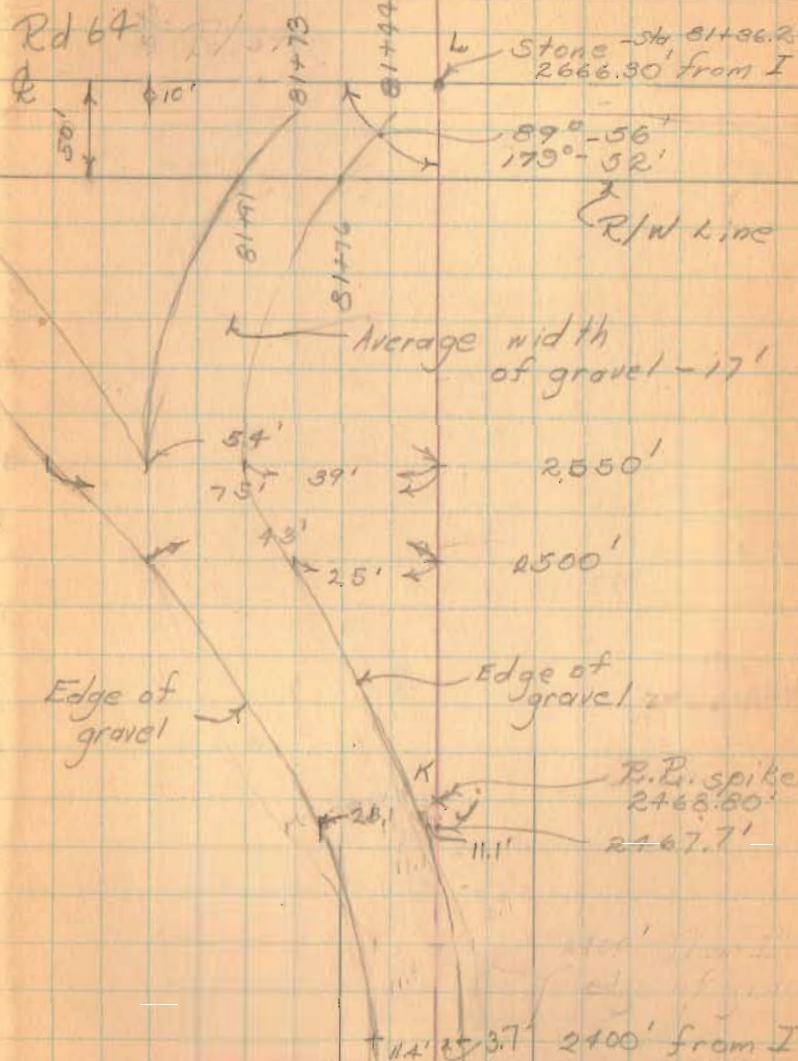 Rd 64
81+73
81+44
L
Stone - Sta 81+36.2
2666.30' from I
10'
50'
89°-56'
179°-52'
R/W Line
81+91
81+76
Average width
of gravel - 17'
54'
75'
39'
2550'
43'
25'
2500'
Edge of
gravel
Edge of
gravel
K
R.R. spike
2468.80'
2467.7'
11.1'
11.4'
3.7'
2400' from I